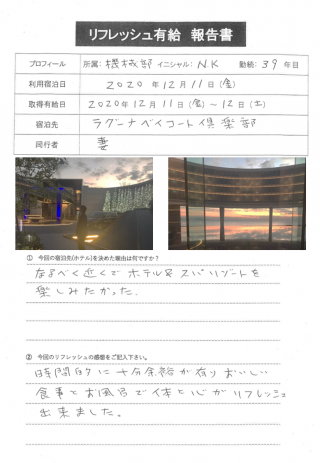 リフレッシュ有給 報告書
プロフィール 所属: 機械部 イニシャル: N.K 勤続: 39年目
利用宿泊日 2020年12月11日(金)
取得有給日 2020年12月11日(金)~12日(土)
宿泊先 ラグーナベイコート倶楽部
同行者 妻
① 今回の宿泊先(ホテル)を決めた理由は何ですか?
なるべく近くでホテル&スパリゾートを
楽しみたかった.
② 今回のリフレッシュの感想をご記入下さい。
時間的に十分余裕が有りおいしい
食事とお風呂で体と心がリフレッシュ
出来ました。